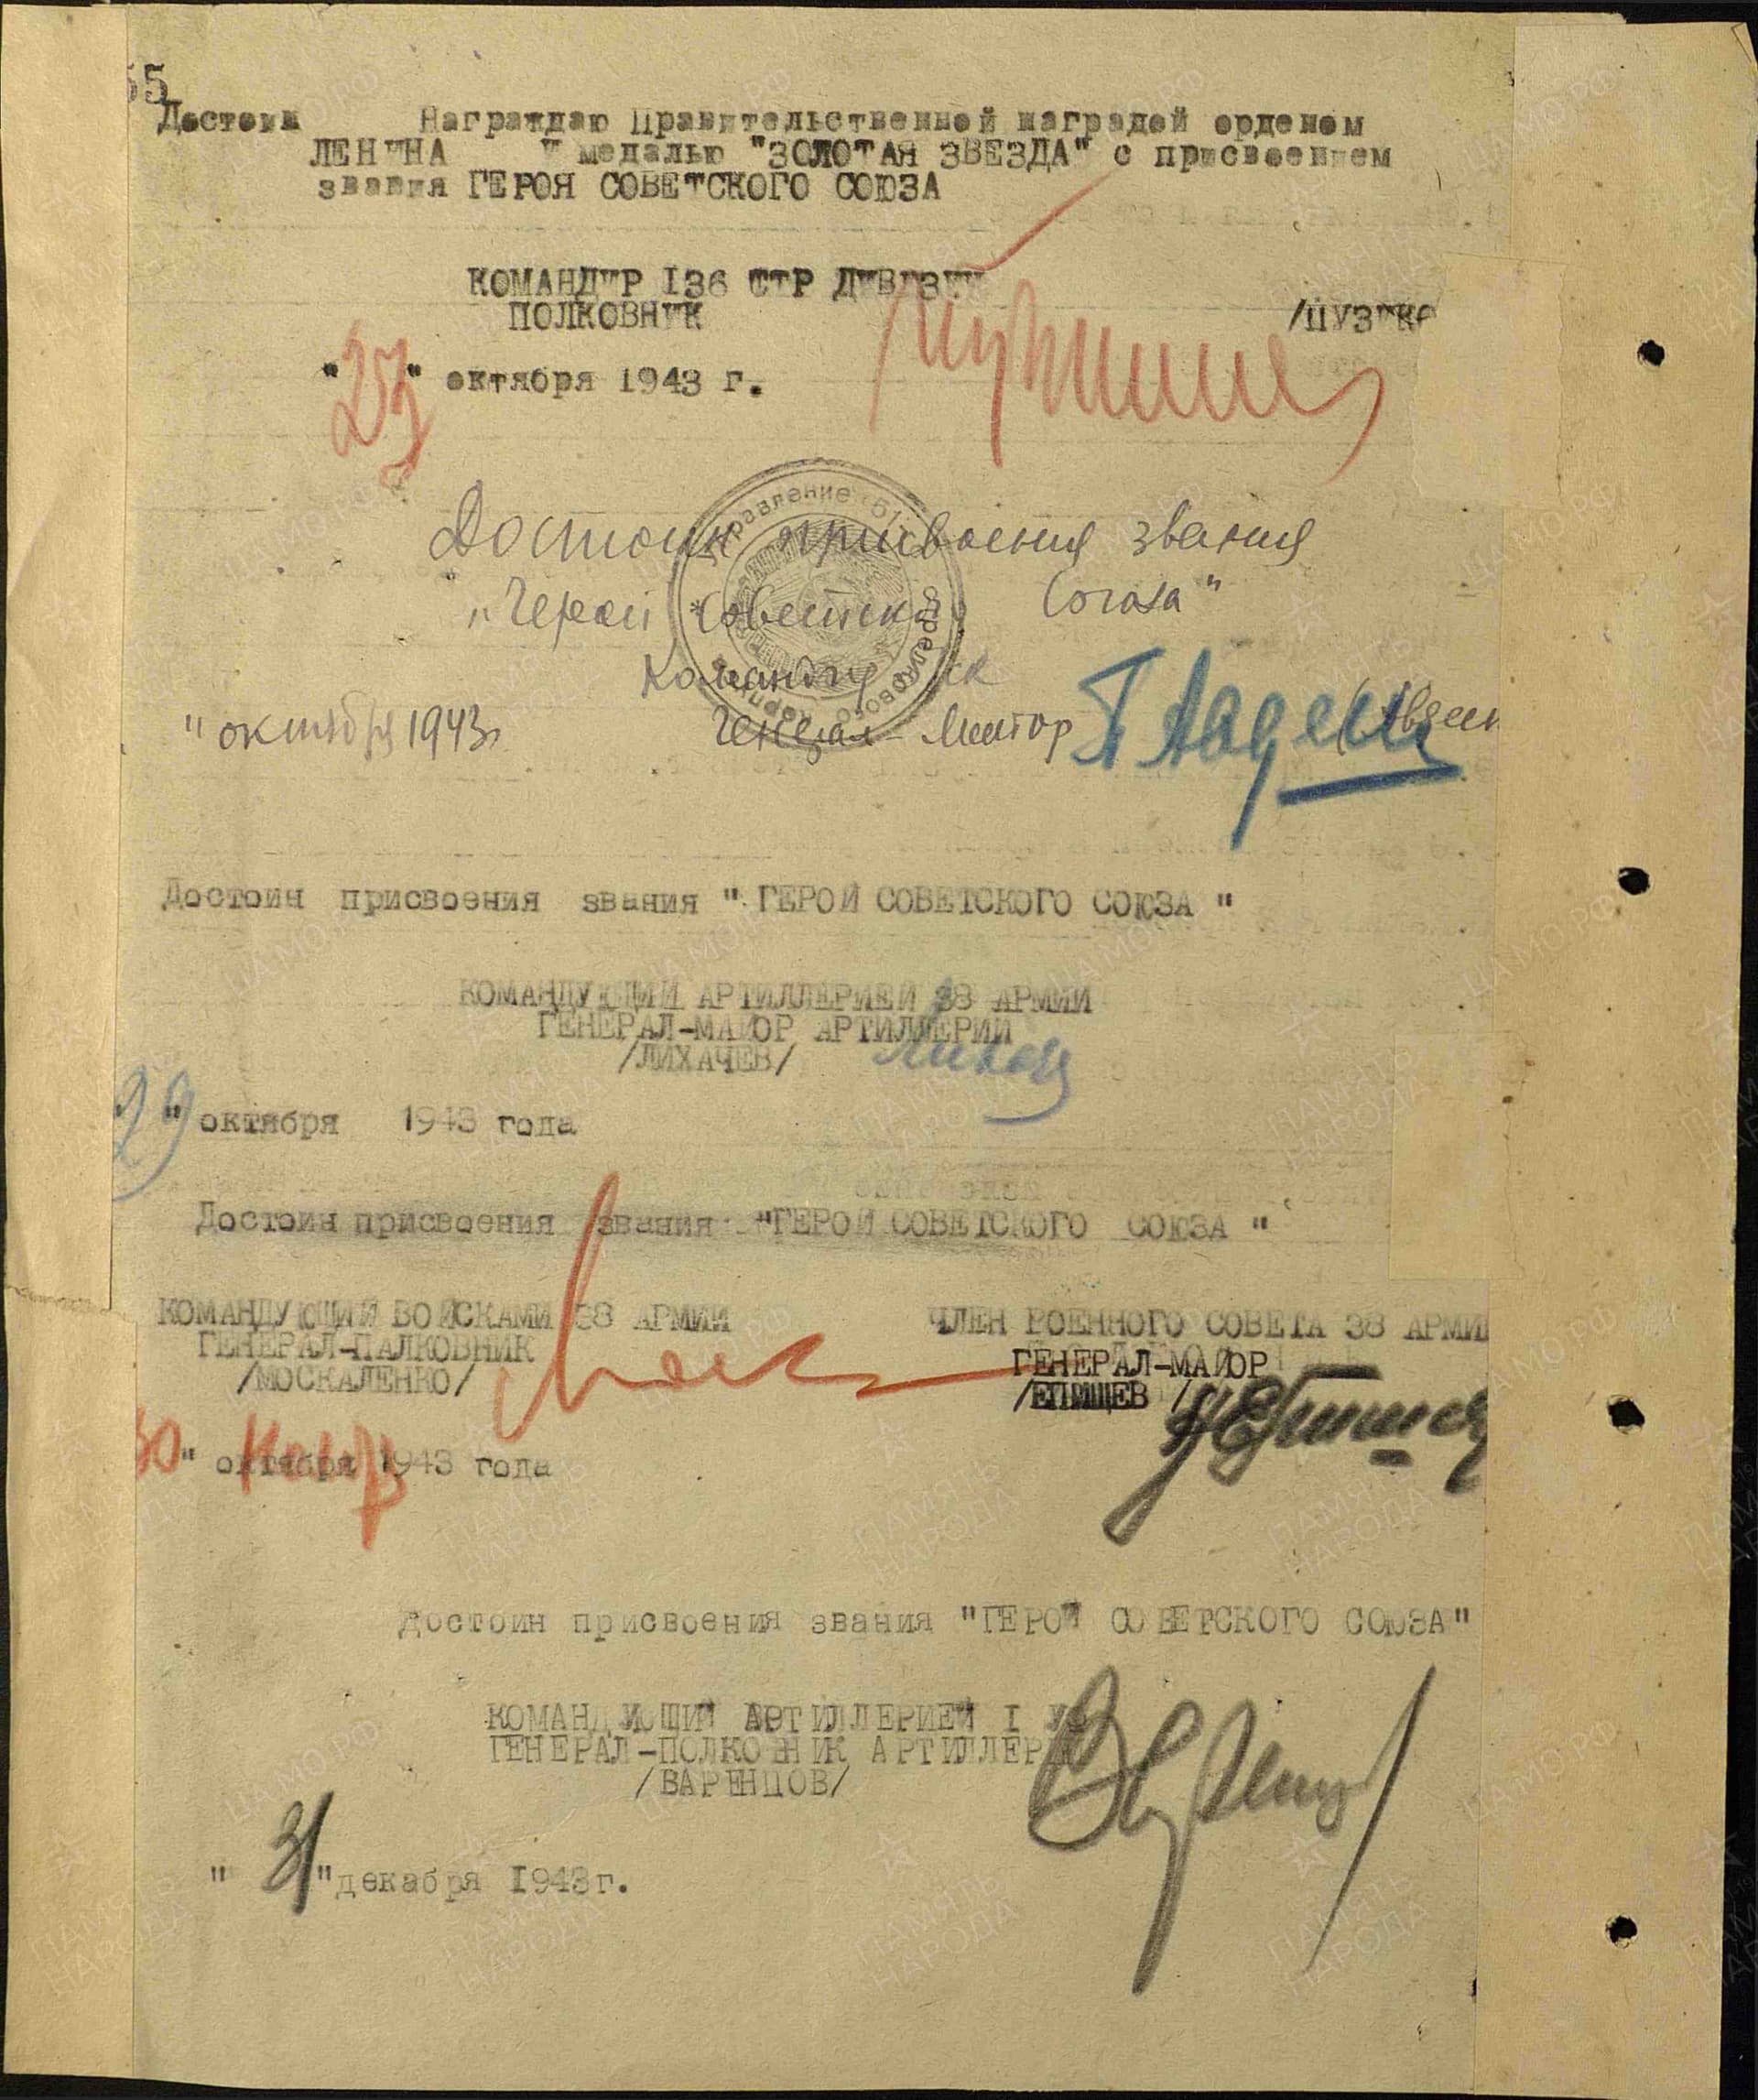 55
Достоин Награждаю Правительственной наградой орденом
ЛЕНИНА и медалью "ЗОЛОТАЯ ЗВЕЗДА" с присвоением
звания ГЕРОЯ СОВЕТСКОГО СОЮЗА
КОМАНДИР 136 СТР ДИВИЗИИ
ПОЛКОВНИК /ПУЗИКО
" " октября 1943 г.
Достоин присвоения звания
"Герой Советского Союза"
Командир ск
" октября 1943г. Генерал-Майор
Управление 51 стрелкового корпуса
Достоин присвоения звания " ГЕРОЙ СОВЕТСКОГО СОЮЗА "
КОМАНДУЮЩИЙ АРТИЛЛЕРИЕЙ 38 АРМИИ
ГЕНЕРАЛ-МАЙОР АРТИЛЛЕРИИ
/ЛИХАЧЕВ/
29 " октября 1943 года
Достоин присвоения звания "ГЕРОЙ СОВЕТСКОГО СОЮЗА "
КОМАНДУЮЩИЙ ВОЙСКАМИ 38 АРМИИ ЧЛЕН ВОЕННОГО СОВЕТА 38 АРМИ
ГЕНЕРАЛ-ПАЛКОВНИК ГЕНЕРАЛ-МАЙОР
/МОСКАЛЕНКО/ /ЕПИЩЕВ /
30" октября 1943 года
Достоин присвоения звания "ГЕРОЙ СОВЕТСКОГО СОЮЗА"
КОМАНДУЮЩИЙ АРТИЛЛЕРИЕЙ I У
ГЕНЕРАЛ-ПОЛКОВНИК АРТИЛЛЕР
/ВАРЕНЦОВ/
" 31 "декабря 1943г.
ПАМЯТЬ НАРОДА
ЦАМО.РФ